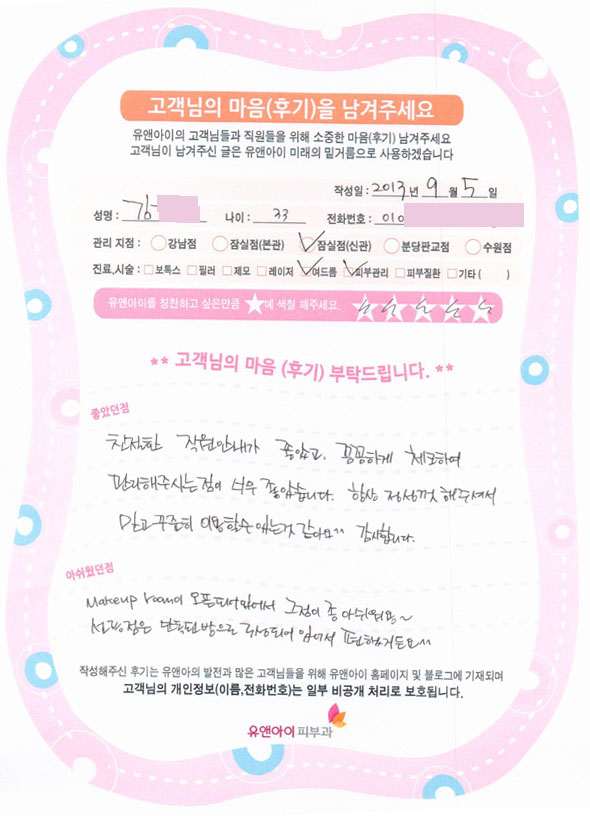 고객님의 마음(후기)을 남겨주세요
유앤아이의 고객님들과 직원들을 위해 소중한 마음(후기) 남겨주세요
고객님이 남겨주신 글은 유앤아이 미래의 밑거름으로 사용하겠습니다
작성일 : 2013년 9월 5일
성명 : 김 나이 : 33 전화번호 : 010
관리 지점 : 강남점 잠실점(본관) 잠실점(신관) 분당판교점 수원점
진료,시술 : 보톡스 필러 제모 레이저 여드름 피부관리 피부질환 기타 ( )
유앤아이를 칭찬하고 싶은만큼 ★에 색칠 해주세요.
** 고객님의 마음 (후기) 부탁드립니다. **
좋았던점
친절한 직원안내가 좋았고, 꼼꼼하게 체크하여
관리해주시는점이 너무 좋았습니다. 항상 정성껏 해주셔서
믿고 꾸준히 이용할수 있는것 같아요^^ 감사합니다.
아쉬웠던점
Makeup room이 오픈되어있어서 그점이 좀 아쉬워요~
점은 단독된방으로 구성되어 있어서 편하거든요^^
작성해주신 후기는 유앤아의 발전과 많은 고객님들을 위해 유앤아이 홈페이지 및 블로그에 기재되며
고객님의 개인정보(이름,전화번호)는 일부 비공개 처리로 보호됩니다.
유앤아이 피부과